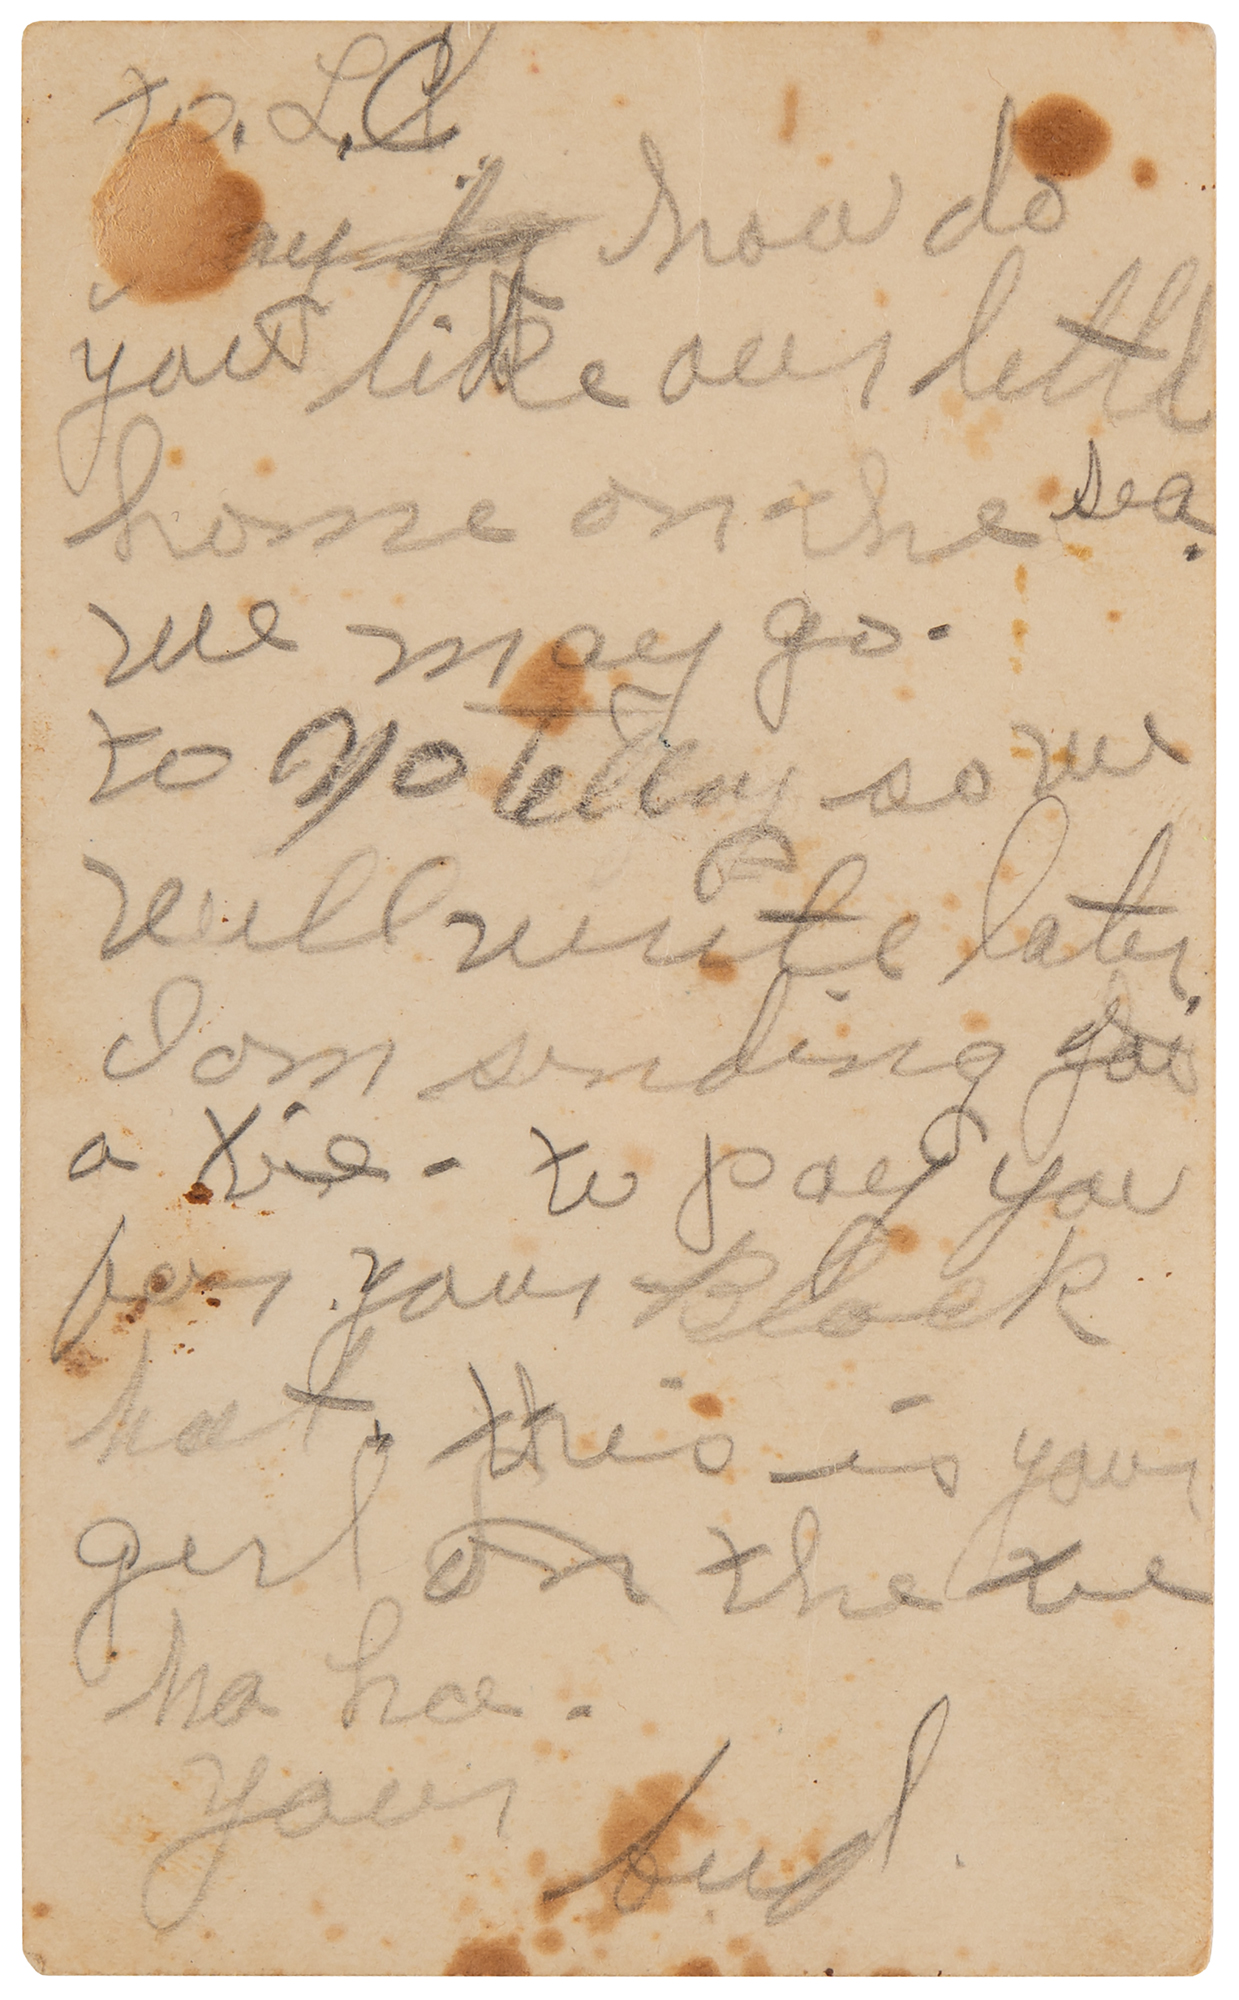 to. L.C.
ay how do
you like our littl
home on the sea.
we may go.
to so we
will write later,
I am sending you
a tie - to pay you
for your Black
hat, this is your
girl on the tie
ha ha.
your bud.